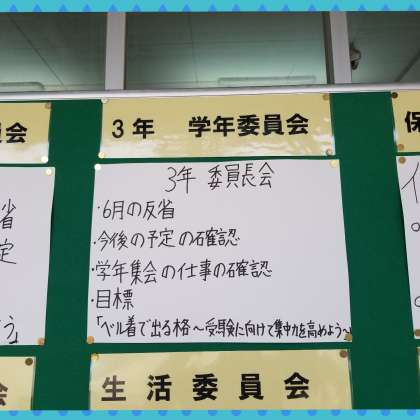 員会
3年 学年委員会
保
3年 委員長会
・6月の反省
・今後の予定の確認
・学年集会の仕事の確認
・目標
「ベル着で出る格〜受験に向けて集中力を高めよう〜
省
定
う」
生活委員会
会